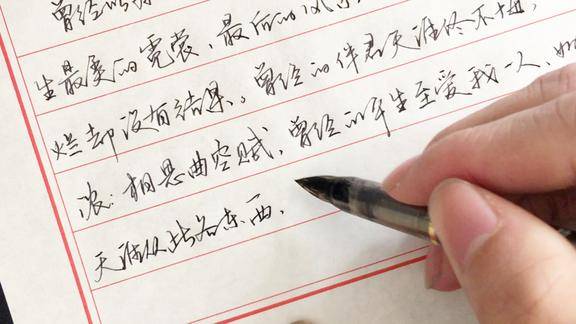 曾经
生最美的霓裳、最后的
烂却没有结果、。曾经的伴君天涯终不悔，
浪：相思曲空赋，曾经的年生至爱我一人、如
天涯从此各东西、